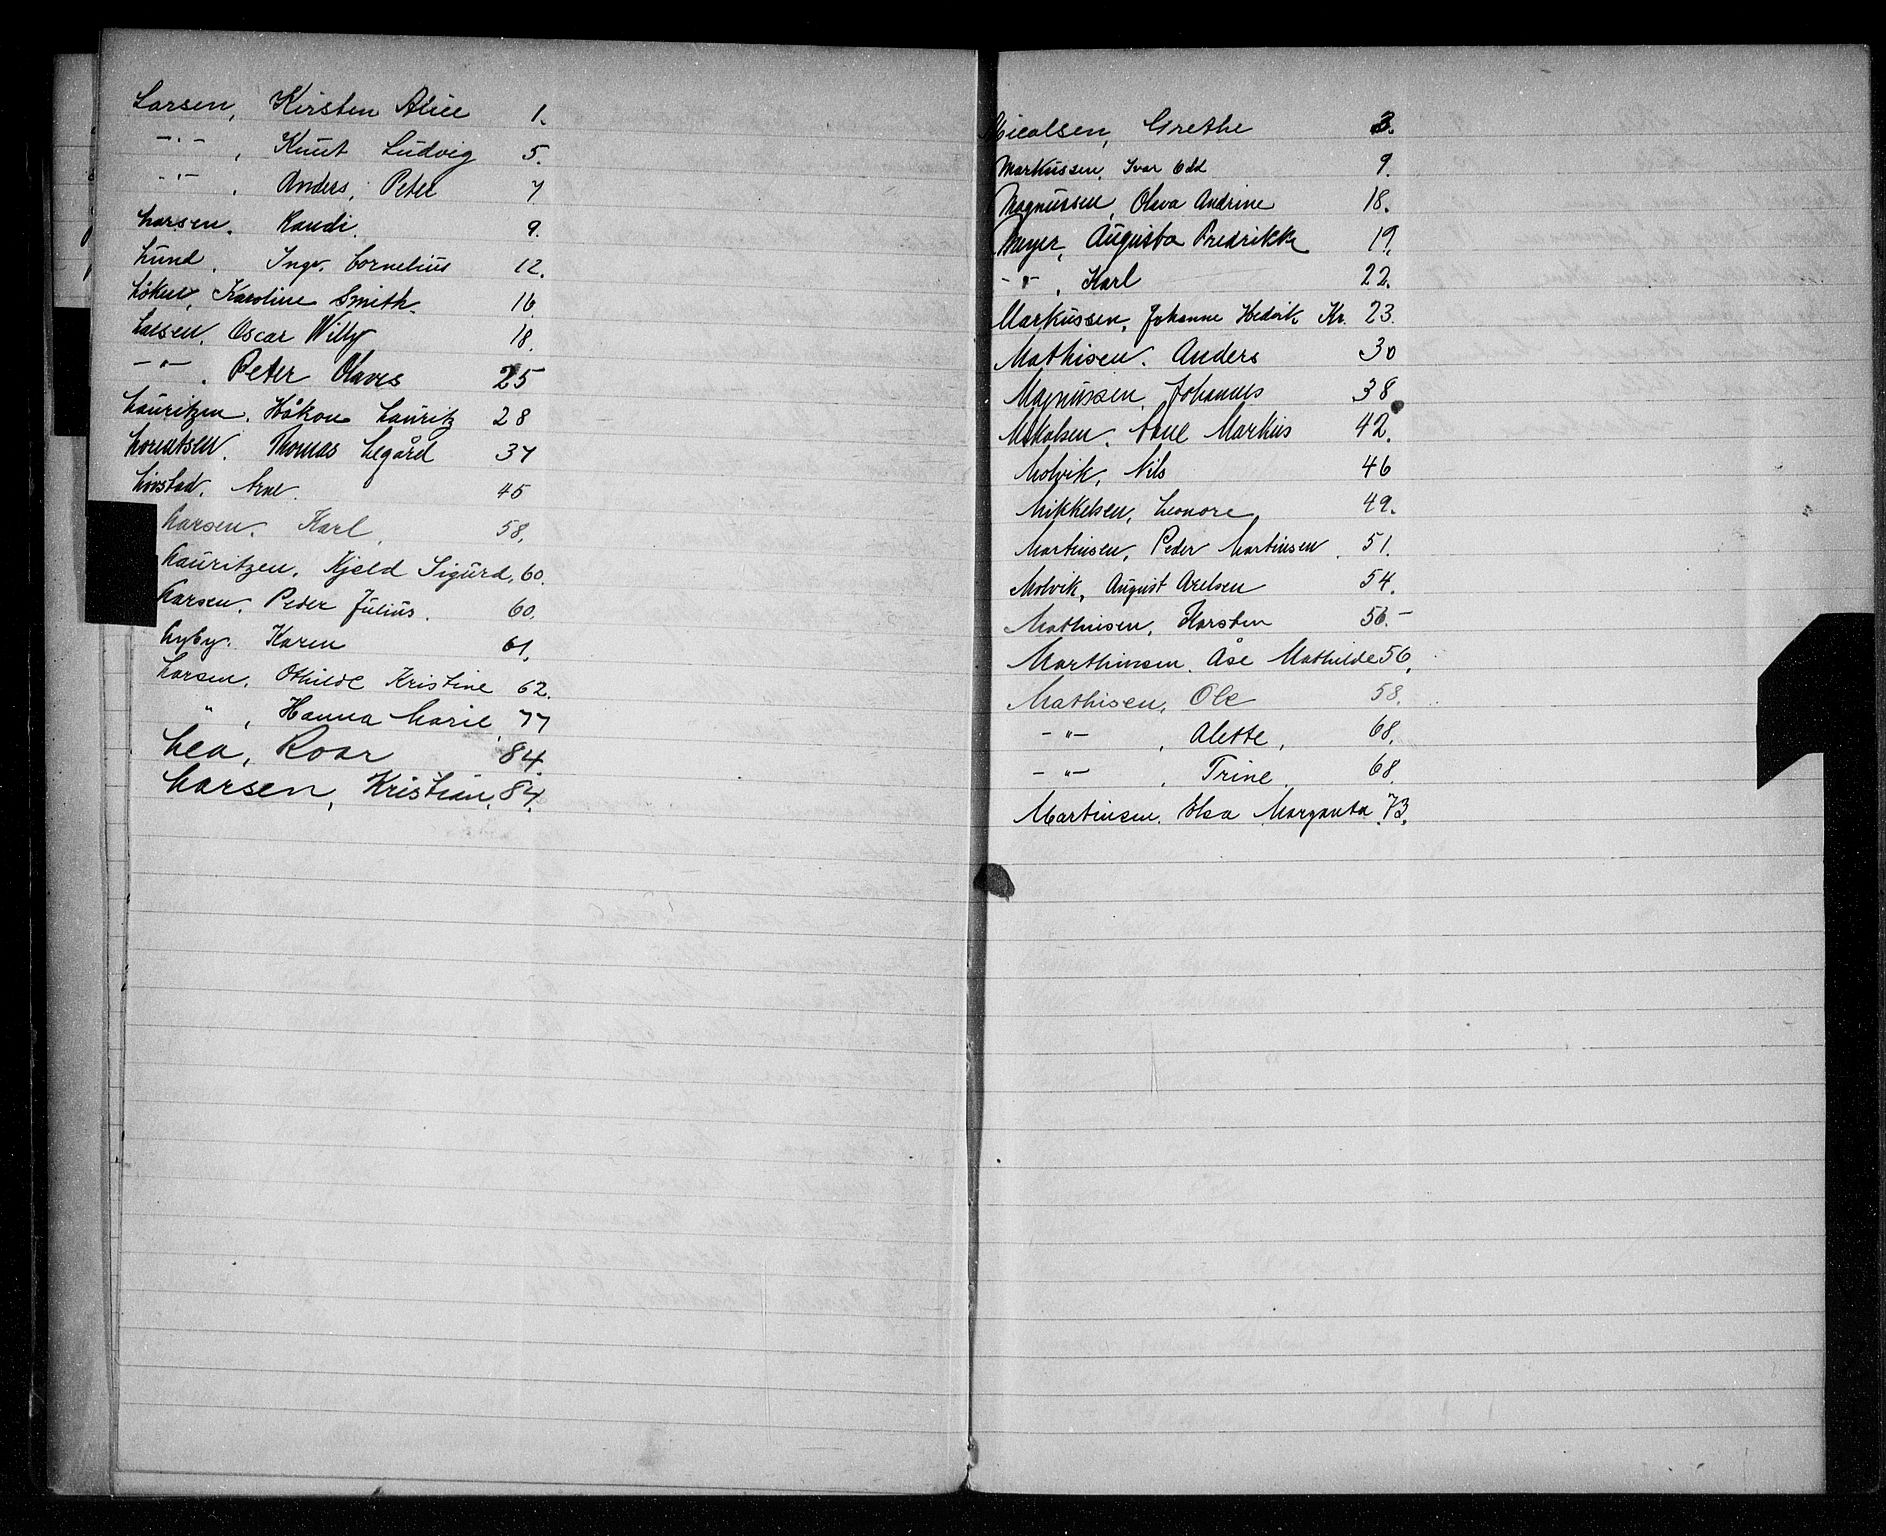 Larsen, Kirsten Alice 1.
-"- , Knut Ludvig 5.
-"- , Anders, Peter 7
Larsen. Randi. 9.
Lund. Ingv. Cornelius 12.
Löken, Karoline Smith. 16.
Larsen. Oscar Willy 18.
-"- . Peter Olaves 25
Lauritzen. Håkon Lauritz 28
Lorentsen. Thomas Legård 37
Lövstad. Arne. 45
Larsen. Karl. 58.
Lauritzen. Kjeld Sigurd. 60.
Larsen. Peder Julius. 60.
Lyby. Karen 61.
Larsen. Othilde Kristine 62.
" , Hanna Marie, 77
Lea, Roar 84.
Larsen, Kristian, 84.
Micalsen, Grethe 3.
Markussen, Ivar Odd 9.
Magnussen, Olava Andrine 18.
Meyer, Augusta Fredrikke 19.
-"- , Karl 22.
Markussen, Johanne Hedvik Kr. 23.
Mathisen. Anders 30
Magnussen, Johannes 38
Mikalsen. Arne Markus 42.
Molvik, Nils 46
Mikkelsen, Leonore 49.
Martinsen, Peder Martinsen. 51.
Molvik, August Axelsen 54.
Mathisen, Karsten 56.-
Marthinsen. Åse Mathilde 56.
Mathisen, Ole 58.
-"- , Alette, 68.
-"- , Trine, 68.
Martinsen. Elsa Margareta 73.